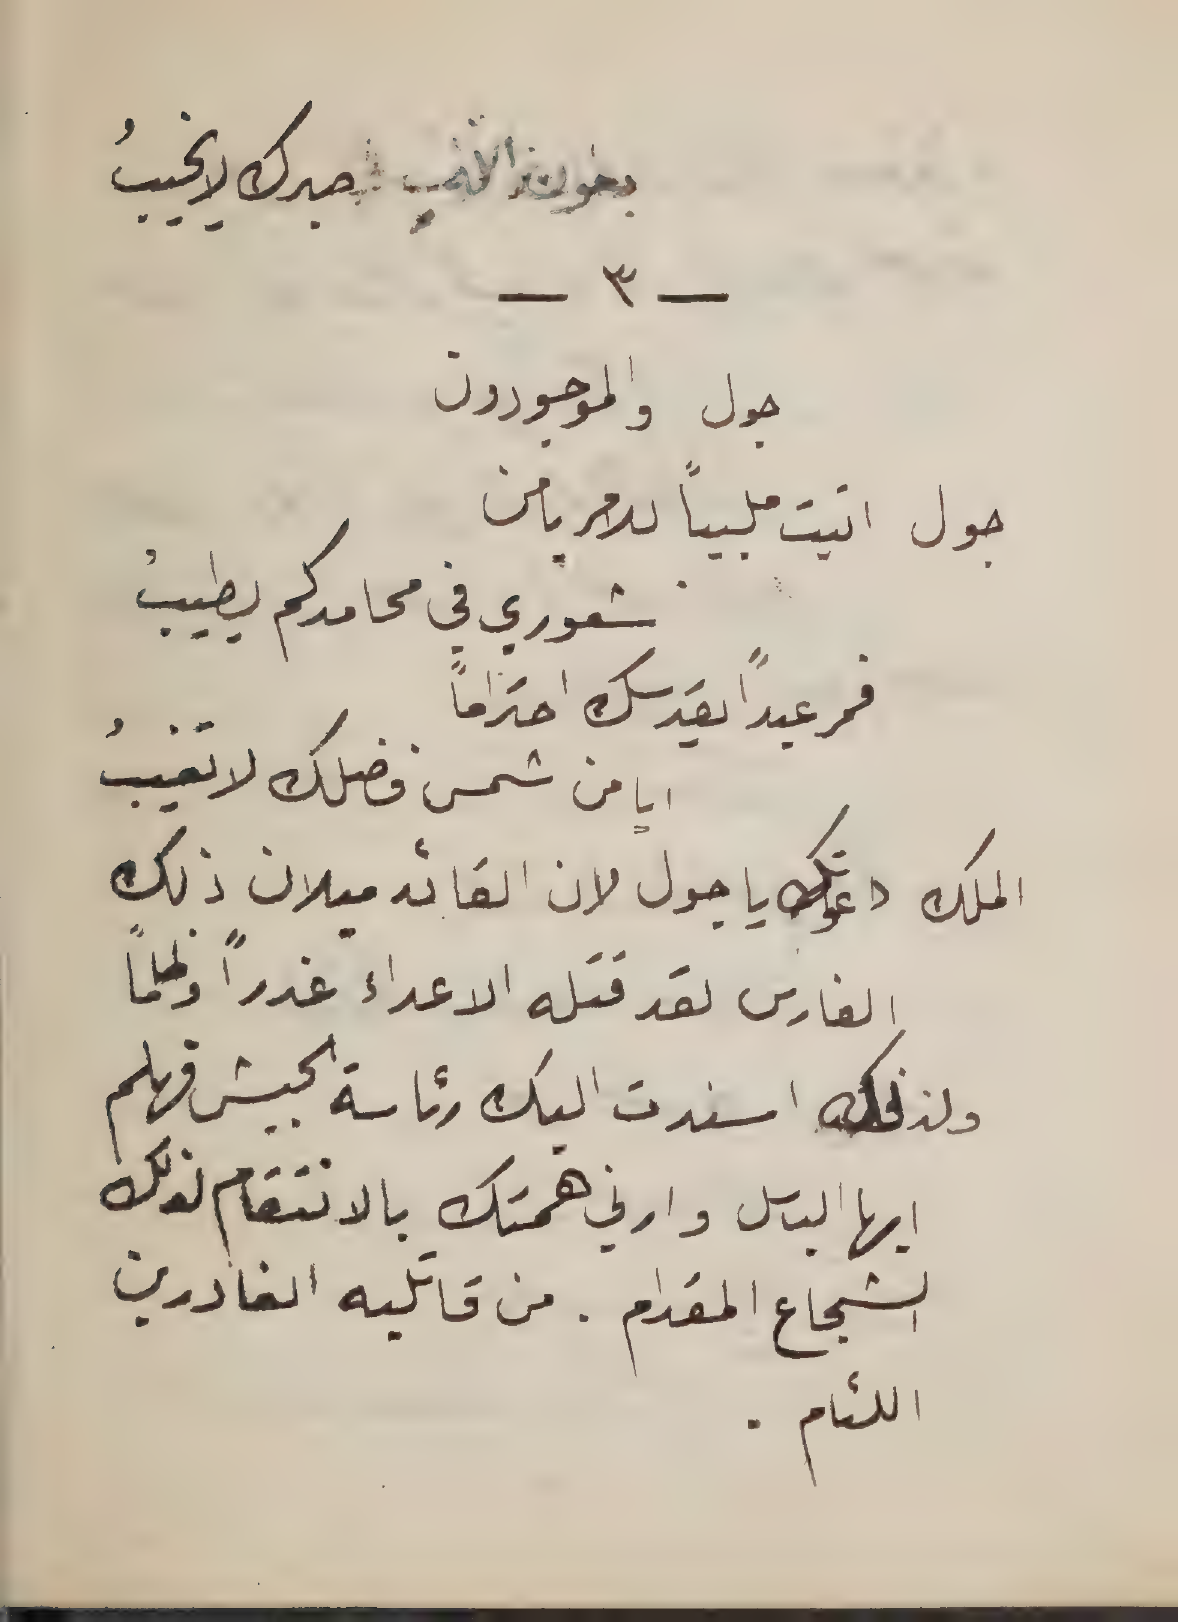 بعون الله جدك لا يخيبُ
— ٣ —
جول والموجودون
جول اتيت ملبياً للامر يا من
شعوري في محامدكم يطيبُ
فمر عبداً يقدسك احتراماً
ايا من شمس فضلك لا تغيبُ
الملك دعوتك يا جول لان القائد ميلان ذلك
الفارس لقد قتله الاعداء غدراً وظلماً
ولذلك اسندت اليك رئاسة الجيش فهلم
ايها الباسل وارني همتك بالانتقام لذلك
الشجاع المقدام . من قاتليه الغادرين
اللئام .